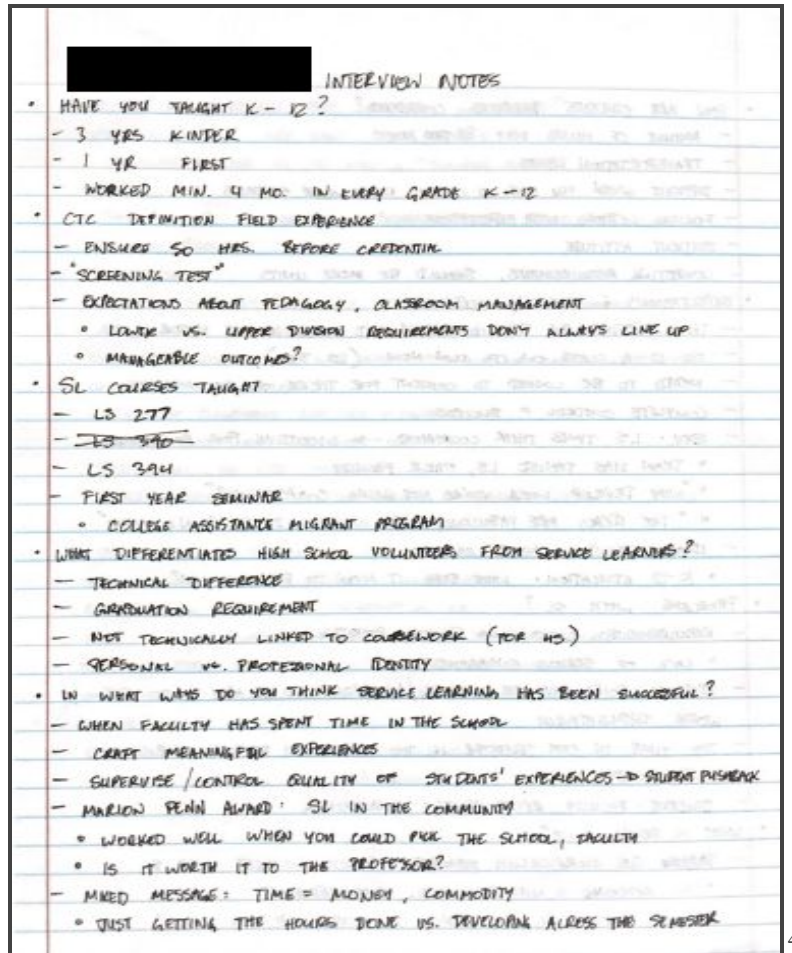 INTERVIEW NOTES
• HAVE YOU TAUGHT K-12?
- 3 YRS KINDER
- 1 YR FIRST
- WORKED MIN. 4 MO. IN EVERY GRADE K-12
• CTC DEFINITION FIELD EXPERIENCE
- ENSURE 50 HRS. BEFORE CREDENTIAL
- "SCREENING TEST"
- EXPECTATIONS ABOUT PEDAGOGY, CLASSROOM MANAGEMENT
• LOWER VS. UPPER DIVISION REQUIREMENTS DON'T ALWAYS LINE UP
• MANAGEABLE OUTCOMES?
• SL COURSES TAUGHT
- LS 277
- LS 390
- LS 394
- FIRST YEAR SEMINAR
• COLLEGE ASSISTANCE MIGRANT PROGRAM
• WHAT DIFFERENTIATES HIGH SCHOOL VOLUNTEERS FROM SERVICE LEARNERS?
- TECHNICAL DIFFERENCE
- GRADUATION REQUIREMENT
- NOT TECHNICALLY LINKED TO COURSEWORK (FOR HS)
- PERSONAL VS. PROFESSIONAL IDENTITY
• IN WHAT WAYS DO YOU THINK SERVICE LEARNING HAS BEEN SUCCESSFUL?
- WHEN FACULTY HAS SPENT TIME IN THE SCHOOL
- CRAFT MEANINGFUL EXPERIENCES
- SUPERVISE/CONTROL QUALITY OF STUDENTS' EXPERIENCES → STUDENT PUSHBACK
- MARION PENN AWARD: SL IN THE COMMUNITY
• WORKED WELL WHEN YOU COULD PICK THE SCHOOL, FACULTY
• IS IT WORTH IT TO THE PROFESSOR?
- MIXED MESSAGE: TIME = MONEY, COMMODITY
• JUST GETTING THE HOURS DONE VS. DEVELOPING ACROSS THE SEMESTER
4